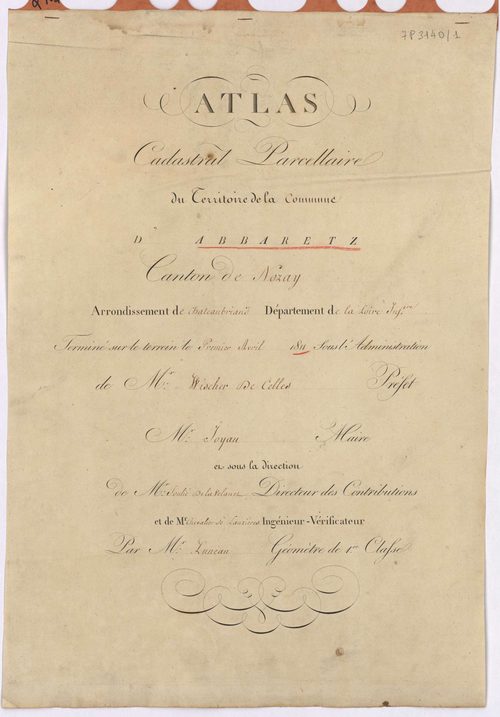 7P3140/1
ATLAS
Cadastral Parcellaire
du Territoire de la Commune
D' ABBARETZ
Canton de Nozay
Arrondissement de Chateaubriand Département de la Loire Inf.re
Terminé sur le terrein le Premier Avril 1811 Sous l'Administration
de Mr. Wischer De Celles Préfet
Mr. Joyau Maire
et sous la direction
de Mr. Directeur des Contributions
et de Mr. Chevalier de Lauzières Ingénieur-Vérificateur
Par Mr. Luneau Géomètre de 1re Classe